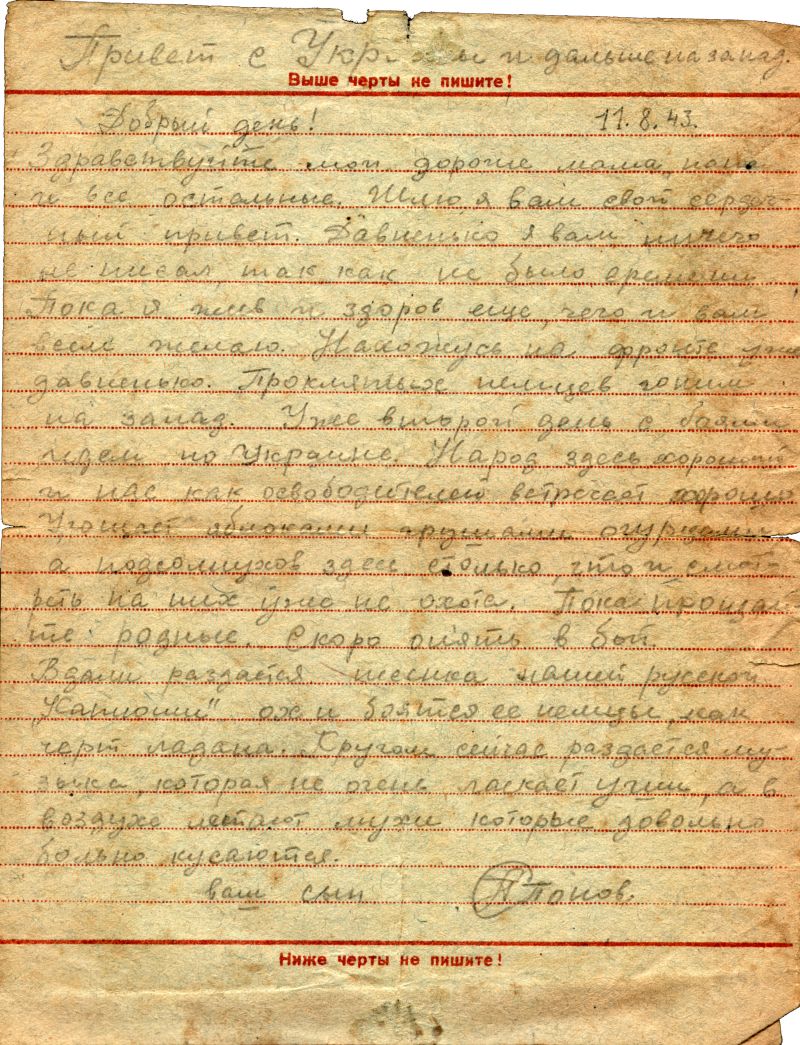 Привет с Укр и дальше на запад.
Выше черты не пишите!
Добрый день! 11.8.43.
Здравствуйте мои дорогие мама, папа
и все остальные. Шлю я вам свой сердеч-
ный привет. Давненько я вам ничего
не писал, так как не было времени
Пока я жив и здоров еще, чего и вам
всем желаю. Нахожусь на фронте уже
давненько. Проклятых немцев гоним
на запад. Уже второй день с боями
идем по Украине. Народ здесь хороший
и нас как освободителей встречает хорошо
Угощает яблоками грушами огурцами
а подсолнухов здесь столько, что и смот-
реть на них уже не охота. Пока прощай-
те родные. Скоро опять в бой.
Вдали раздается песенка нашей русской
„Катюши" ох и боятся ее немцы, как
черт ладана. Кругом сейчас раздается му-
зыка, которая не очень ласкает уши, а в
воздухе летают мухи которые довольно
больно кусаются.
ваш сын Попов.
Ниже черты не пишите!